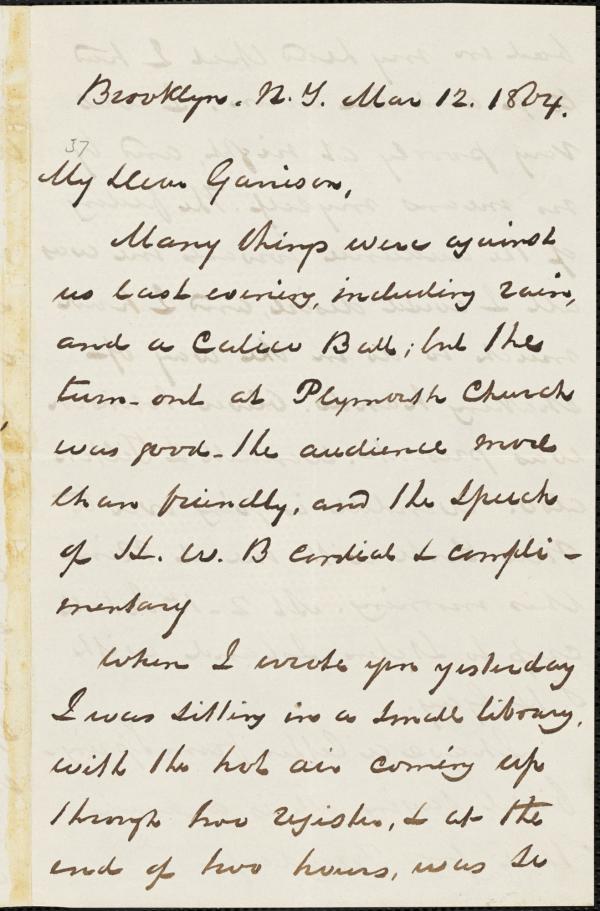 Brooklyn. N. Y. Mar 12. 1864.
37
My Dear Garrison,
Many things were against
us last evening, including rain,
and a Calico Ball; but the
turn-out at Plymouth Church
was good - the audience more
than friendly, and the speech
of H. W. B cordial & compli-
mentary
When I wrote you yesterday
I was sitting in a small library,
with the hot air coming up
through two register, & at the
end of two hours, was so